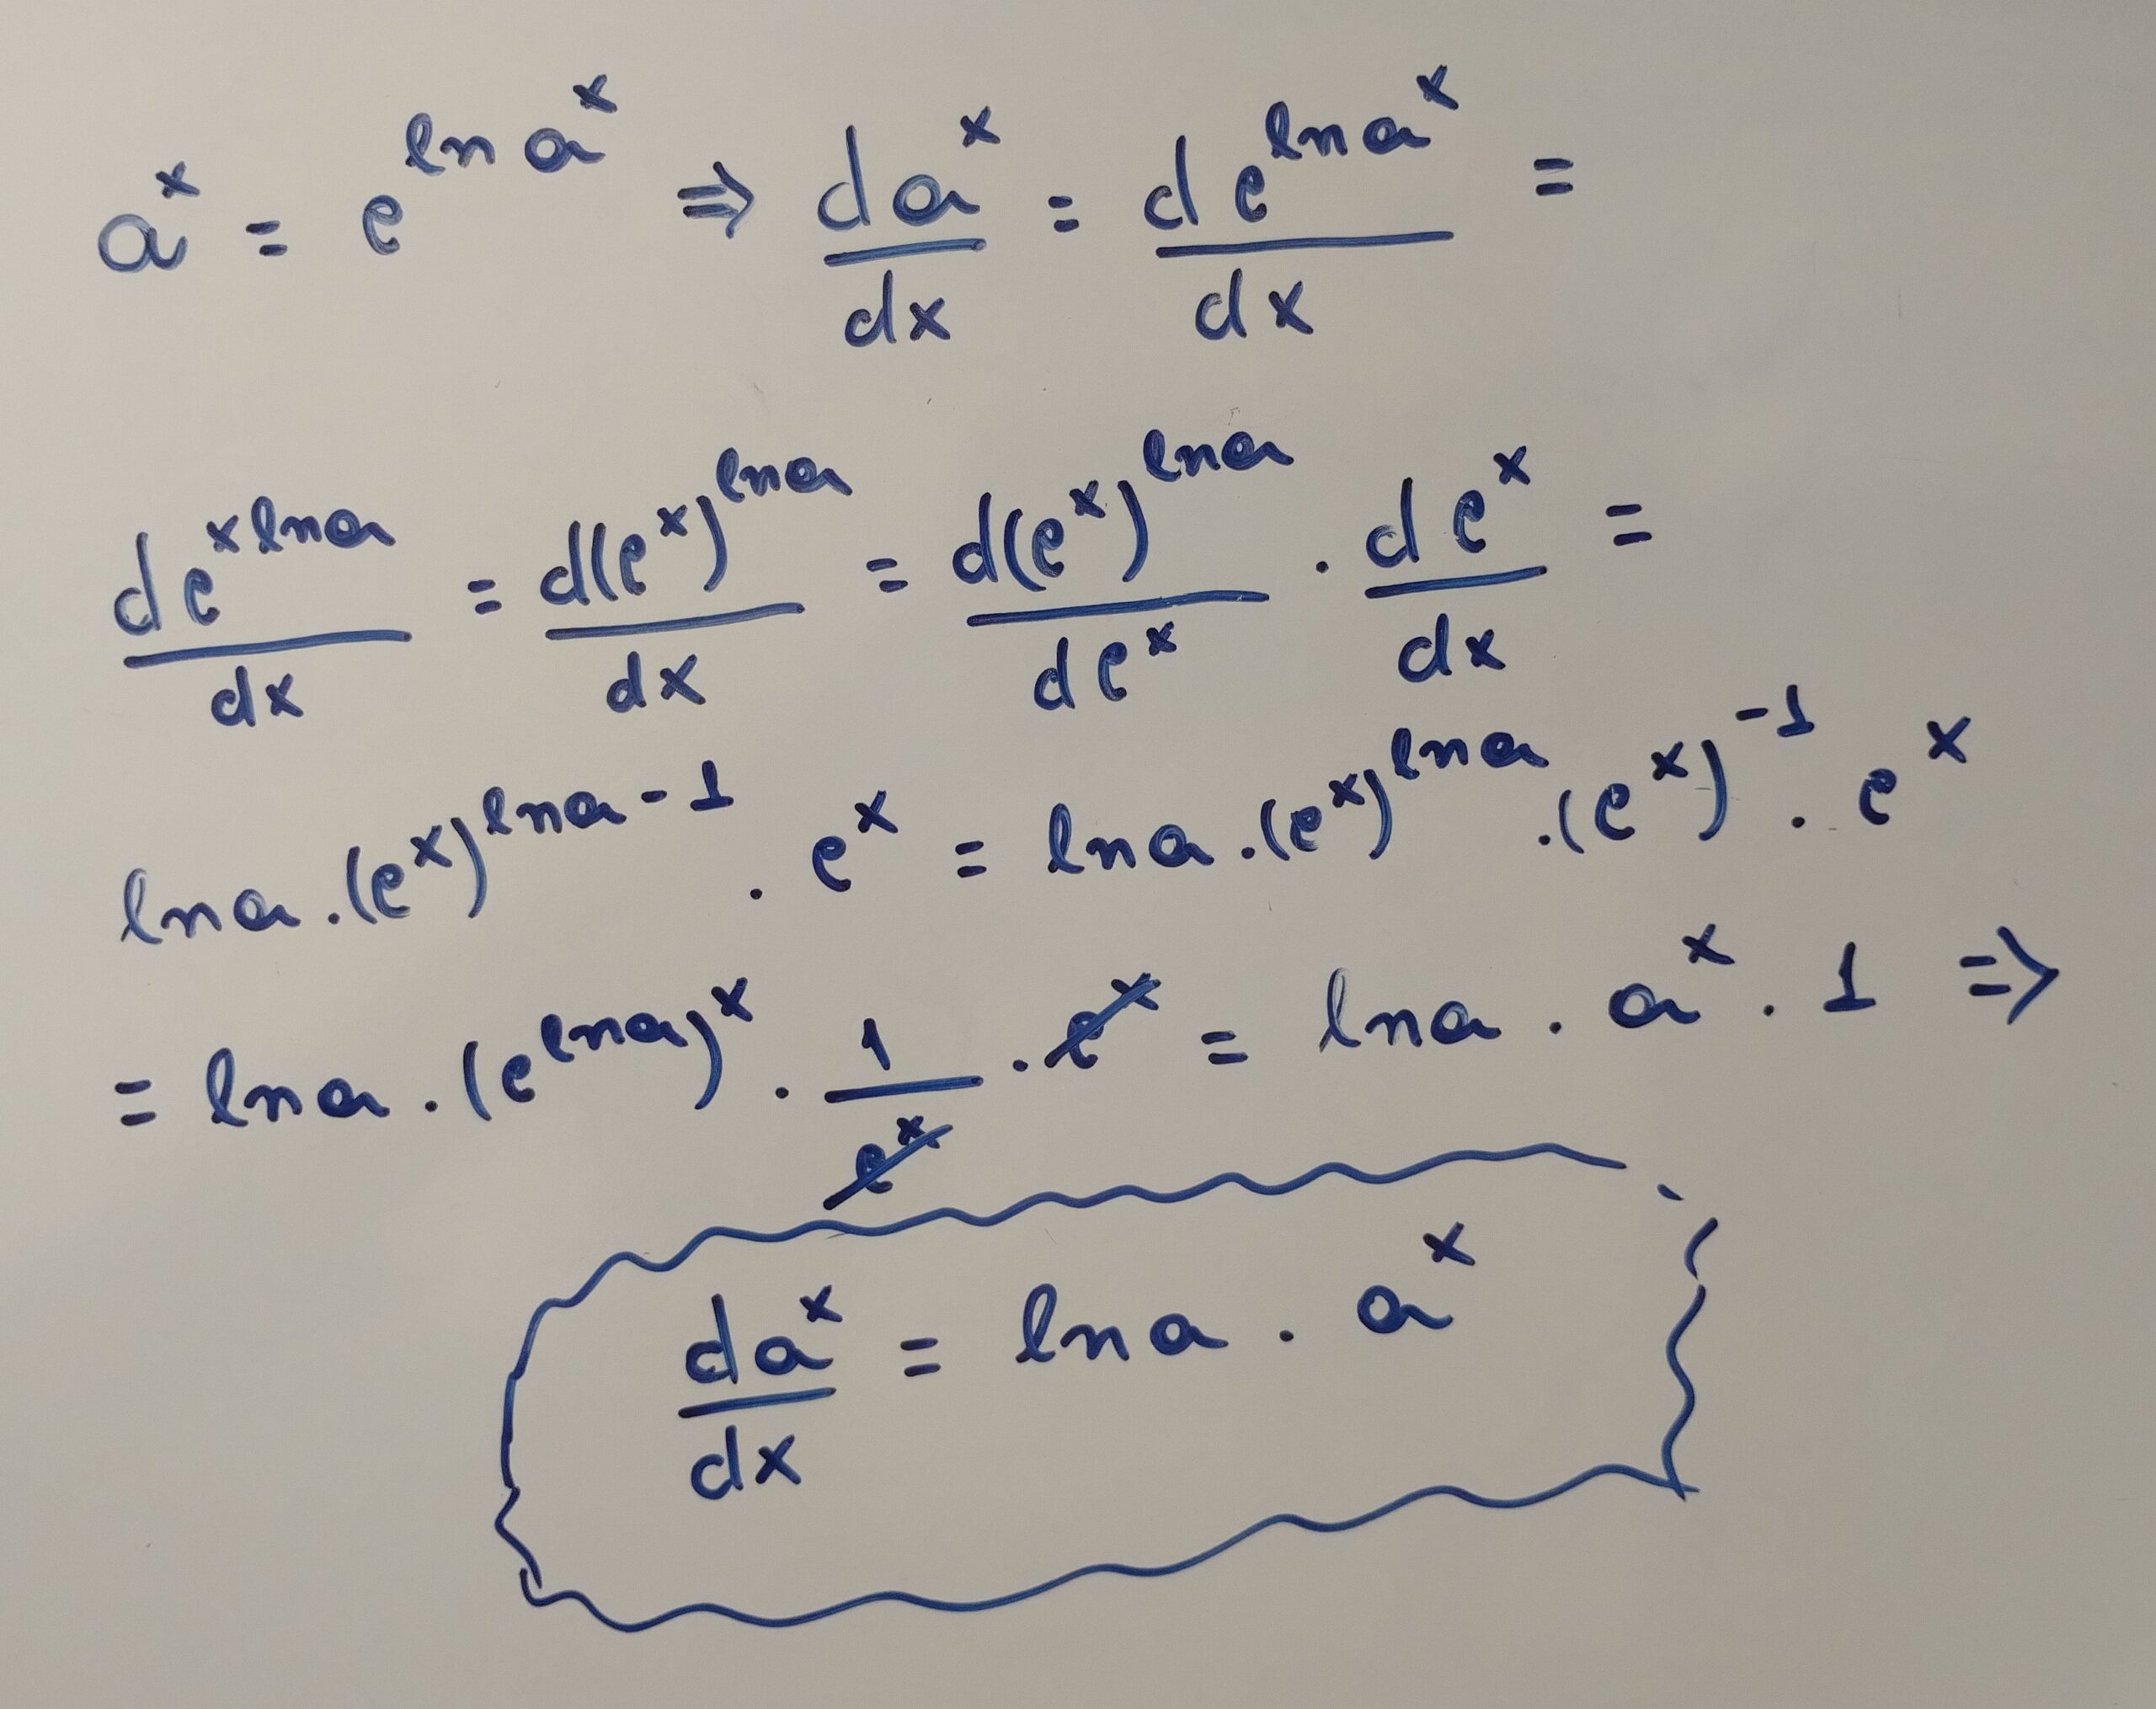 a^x = e^{ln a^x} ⇒ \frac{da^x}{dx} = \frac{de^{ln a^x}}{dx} =
\frac{de^{x ln a}}{dx} = \frac{d(e^x)^{ln a}}{dx} = \frac{d(e^x)^{ln a}}{de^x} · \frac{de^x}{dx} =
ln a · (e^x)^{ln a - 1} · e^x = ln a · (e^x)^{ln a} · (e^x)^{-1} · e^x
= ln a · (e^{ln a})^x · \frac{1}{\cancel{e^x}} · \cancel{e^x} = ln a · a^x · 1 ⇒
\frac{da^x}{dx} = ln a · a^x